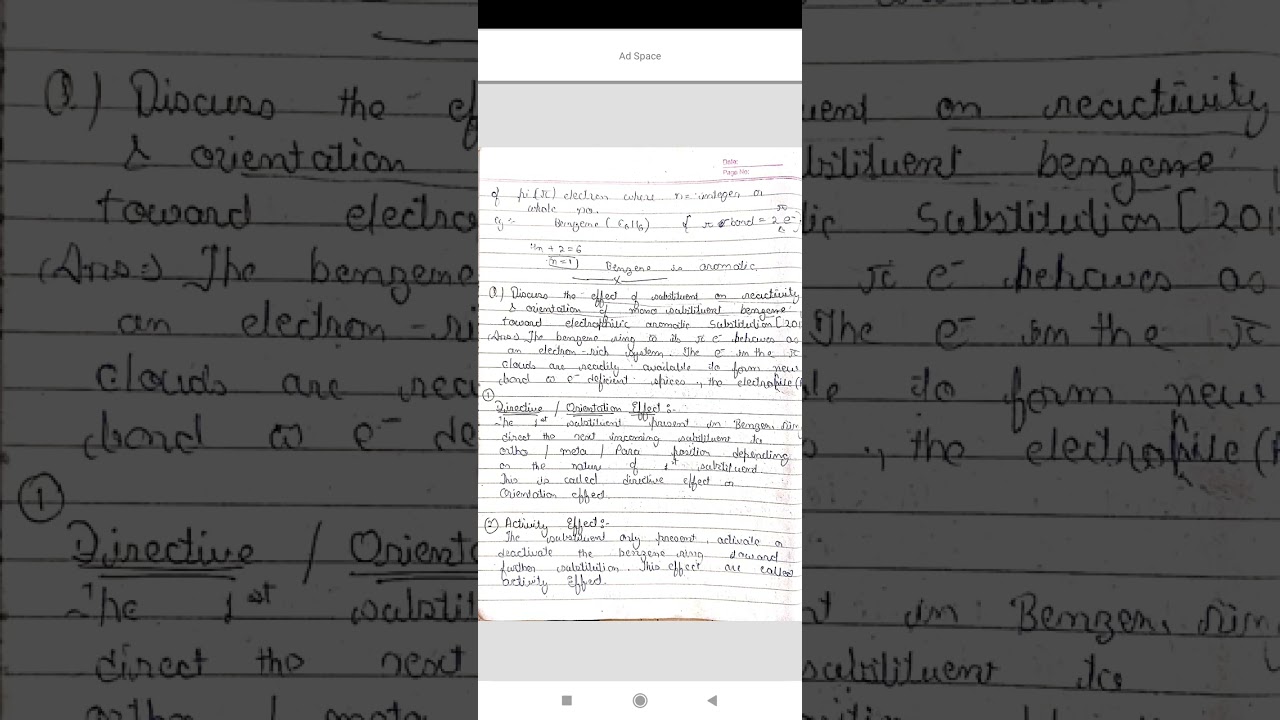 Ad Space
Date:
Page No:
of pi (π) electron where n = integer or
whole no.
eg :- Benzene (C6H6) { π bond = 2 π e-
4n + 2 = 6
n = 1
Benzene is aromatic.
Q.) Discuss the effect of substituent on reactivity
& orientation of mono substituent benzene
toward electrophilic aromatic Substitution [201
(Ans:-) The benzene ring its π e- behaves as
an electron-rich system. The e- in the π
clouds are readily available to form new
bond e- deficient spices., the electrophile (
①
Directive / Orientation Effect :-
The 1st substituent present in Benzene rin
direct the next incoming substituent to
ortho / meta / Para position depending
on the nature of 1st substituent.
This is called directive effect or
Orientation effect.
② Activity Effect :-
The substituent present, activate or
deactivate the benzene ring toward
further substitution. This effect are called
activity Effect.